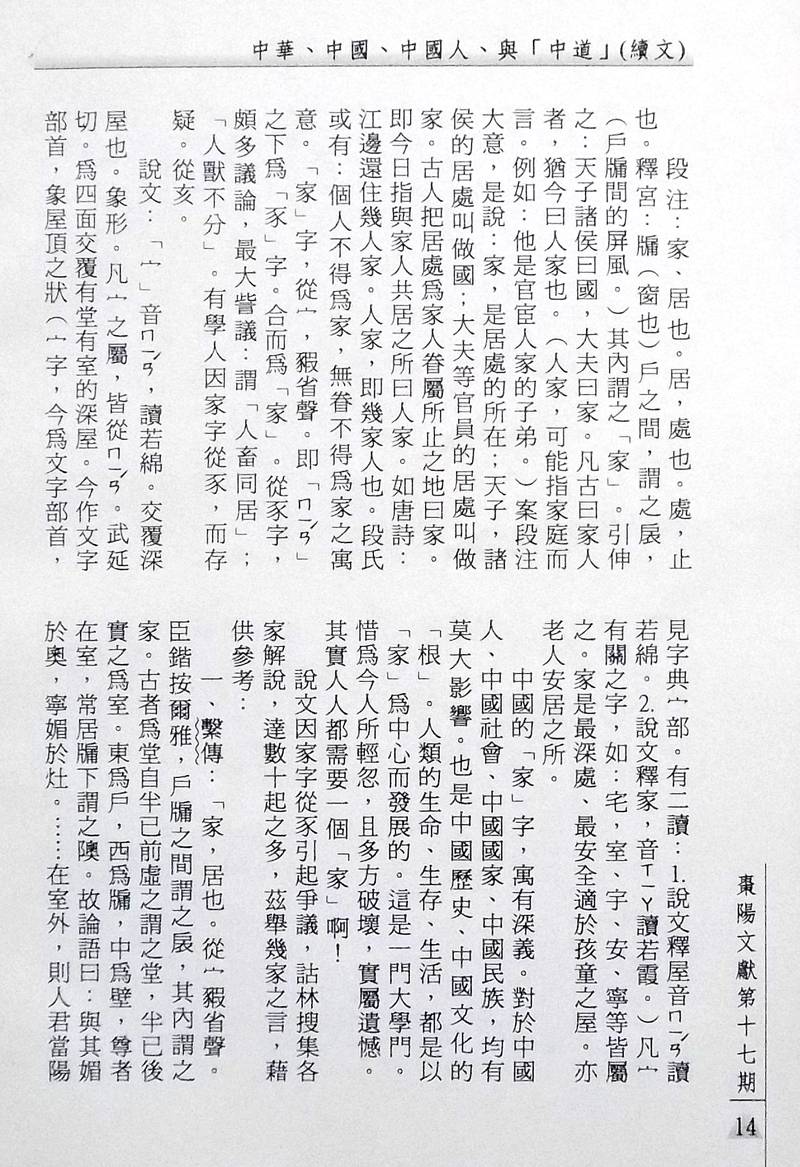 中華、中國、中國人、與「中道」(續文)
段注：家、居也。居，處也。處，止
也。釋宮：牖（窗也）戶之間，謂之扆，
（戶牖間的屏風。）其內謂之「家」。引伸
之：天子諸侯曰國，大夫曰家。凡古曰家人
者，猶今曰人家也。（人家，可能指家庭而
言。例如：他是官宦人家的子弟。）案段注
大意，是說：家，是居處的所在；天子，諸
侯的居處叫做國；大夫等官員的居處叫做
家。古人把居處為家人眷屬所止之地曰家。
即今日指與家人共居之所曰人家。如唐詩：
江邊還住幾人家。人家，即幾家人也。段氏
或有：個人不得為家，無眷不得為家之寓
意。「家」字，從宀，豭省聲。即「ㄇㄧㄢˊ」
之下為「豕」字。合而為「家」。從豕字，
頗多議論，最大訾議：謂「人畜同居」；
「人獸不分」。有學人因家字從豕，而存
疑。從亥。
說文：「宀」音ㄇㄧㄢˊ，讀若綿。交覆深
屋也。象形。凡宀之屬，皆從ㄇㄧㄢˊ。武延
切。為四面交覆有堂有室的深屋。今作文字
部首，象屋頂之狀（宀字，今為文字部首，
見字典宀部。有二讀：1.說文釋屋音ㄇㄧㄢˊ讀
若綿。2.說文釋家，音ㄒㄧㄚ讀若霞。）凡宀
有關之字，如：宅，室、宇、安、寧等皆屬
之。家是最深處、最安全適於孩童之屋。亦
老人安居之所。
中國的「家」字，寓有深義。對於中國
人、中國社會、中國國家、中國民族，均有
莫大影響。也是中國歷史、中國文化的
「根」。人類的生命、生存、生活，都是以
「家」為中心而發展的。這是一門大學門。
惜為今人所輕忽，且多方破壞，實屬遺憾。
其實人人都需要一個「家」啊！
說文因家字從豕引起爭議，詁林搜集各
家解說，達數十起之多，茲舉幾家之言，藉
供參考：
一、繫傳：「家，居也。從宀豭省聲。
臣鍇按爾雅，戶牖之間謂之扆，其內謂之
家。古者為堂自半已前虛之謂之堂，半已後
實之為室。東為戶，西為牖，中為壁，尊者
在室，常居牖下謂之隩。故論語曰：與其媚
於奧，寧媚於灶。……在室外，則人君當陽
棗陽文獻第十七期
14